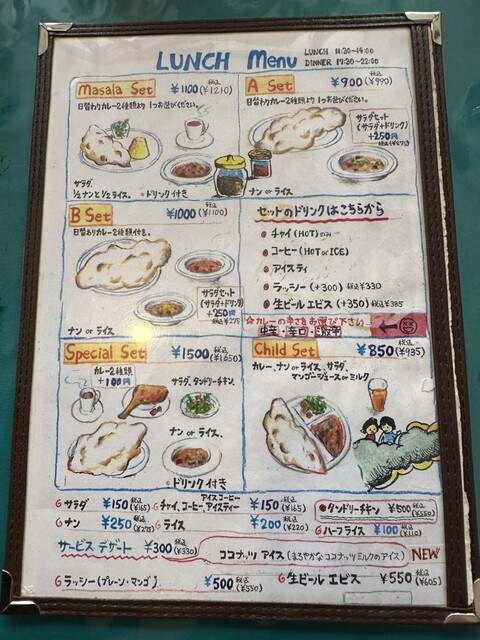 LUNCH Menu
LUNCH 11:30~14:00
DINNER 17:30~22:00
Masala Set ¥1100 税込(¥1210)
日替わりカレー2種類より 1つお選びください。
サラダ
½ナンと½ライス。 ・ドリンク付き
A Set ¥900 税込(¥990)
日替わりカレー2種類より 1つお選びください。
サラダセット
(サラダ+ドリンク)
+250円
ナン or ライス
B Set ¥1000 税込(¥1100)
日替わりカレー2種類付き。
サラダセット
(サラダ+ドリンク)
+250円
税込¥275
ナン or ライス
セットのドリンクはこちらから
チャイ(HOT)のみ
コーヒー(HOT or ICE)
アイスティ
ラッシー(+300) 税込¥330
生ビール エビス(+350) 税込¥385
☆カレーの辛さをお選び下さい
中辛・辛口・大辛
Special Set ¥1500 税込(¥1650)
カレー2種類
+100円
サラダ、タンドリーチキン、
ナン or ライス、
・ドリンク付き
Child Set ¥850 税込(¥935)
カレー、ナン or ライス、サラダ、
マンゴージュース or ミルク
サラダ ¥150 税込(¥165)
アイスコーヒー
チャイ、コーヒー、アイスティー ¥150 税込(¥165)
タンドリーチキン ¥500 税込(¥550)
ナン ¥250 税込(¥275)
ライス ¥200 税込(¥220)
ハーフライス ¥100 税込(¥110)
サービス デザート ¥300 税込(¥330)
ココナッツ アイス (まろやかなココナッツミルクのアイス) NEW
ラッシー(プレーン・マンゴ) ¥500 税込(¥550)
生ビール エビス ¥550 税込(¥605)